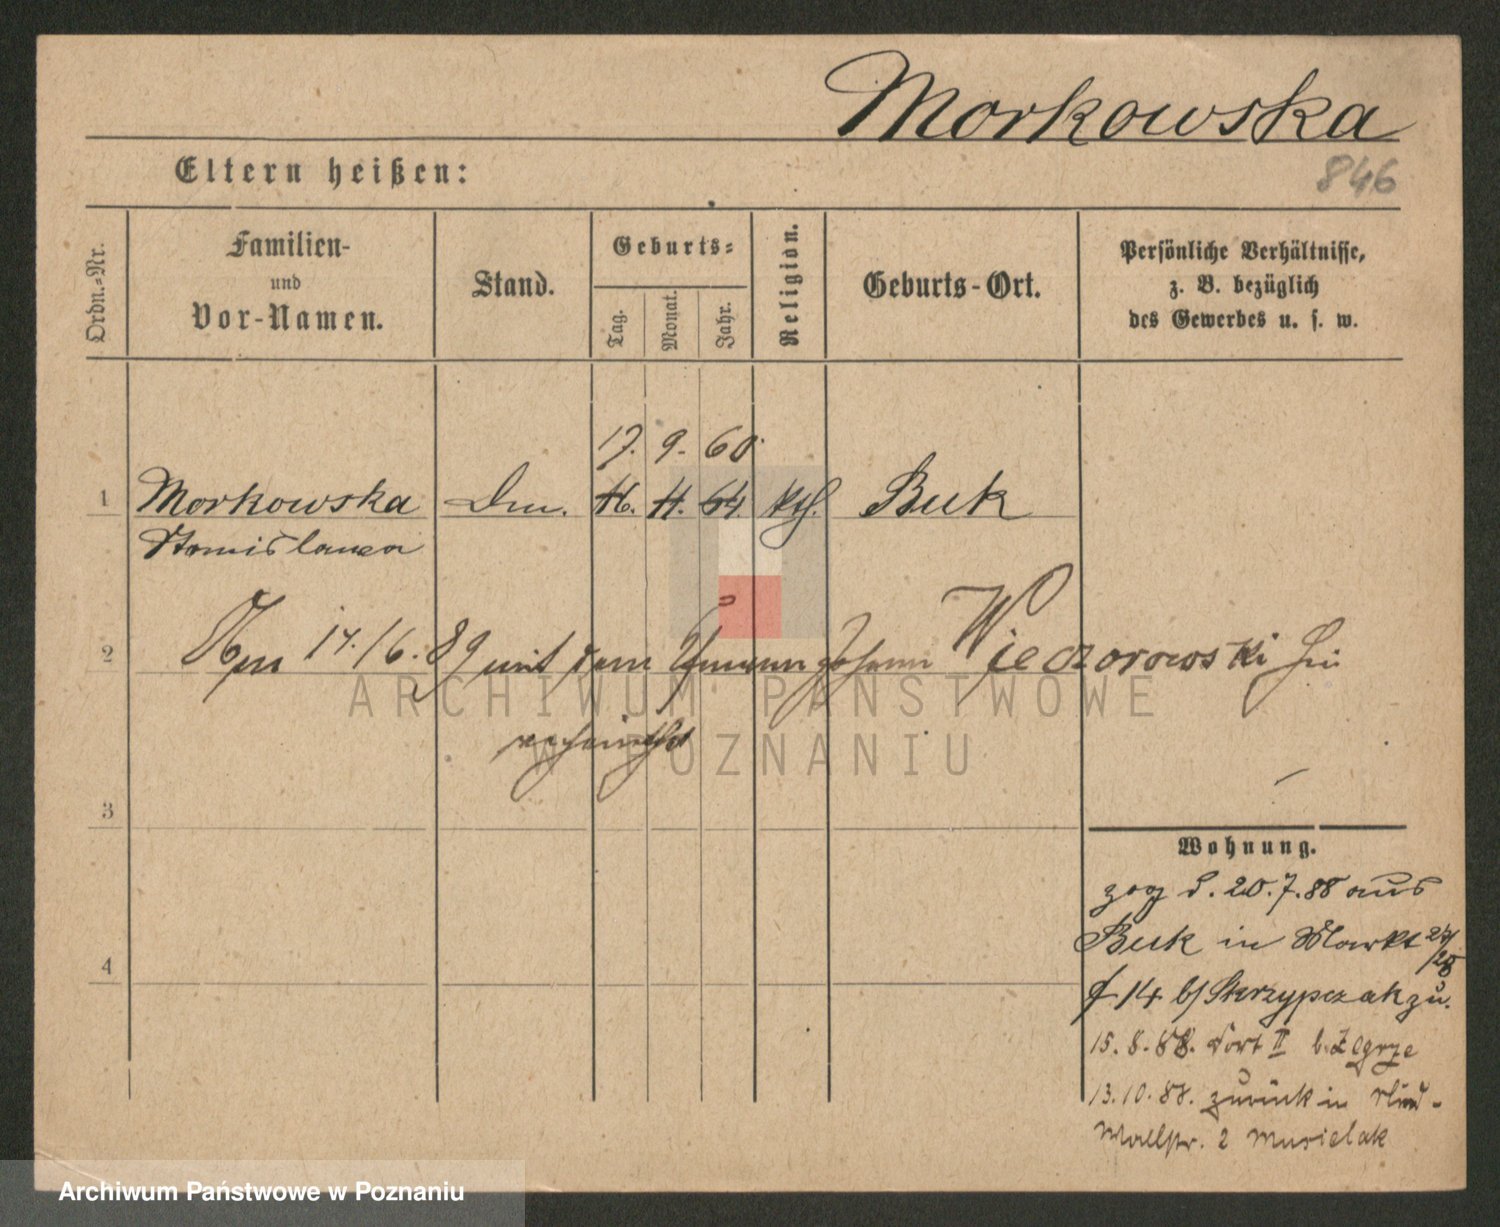 Morkowska
846
Eltern heißen:
Ordn.-Nr.
Familien-
und
Vor-Namen.
Stand.
Geburts-
Tag.
Monat.
Jahr.
Religion.
Geburts-Ort.
Persönliche Verhältnisse,
z. B. bezüglich
des Gewerbes u. s. w.
17. 9. 60
1 Morkowska 16. 11. 64. kth. Buk
Stanislawa
2 Am 17./6. 89 mit dem Johann Wieczorowski hier
3
ARCHIWUM PAŃSTWOWE
W POZNANIU
Wohnung.
zog d. 20.7.88 aus
Buk in Markt 27/28
14 b/ Skrzypczak zu.
15. 8. 88. Fort II b. Zegrze
4
13. 10. 88. zurück in
Wallstr. 2 Musielak
Archiwum Państwowe w Poznaniu